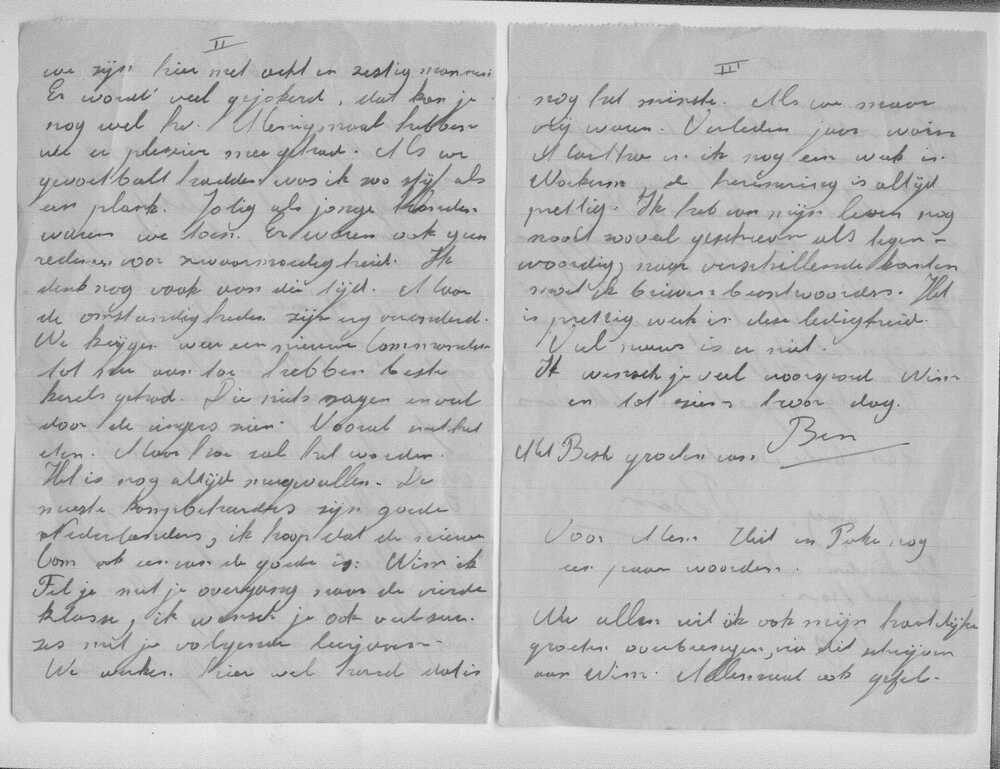 II
we zijn hier met acht en zestig mannen.
Er wordt veel gejokerd, dat kan je
nog wel hè. Menigmaal hebben
we er plezier mee gehad. Als we
gevoetbalt hadden was ik zoo stijf als
een plank. Jolig als jonge honden
waren we toen. Er waren ook geen
redenen voor zwaarmoedigheid. Ik
denk nog vaak aan die tijd. Maar
de omstandigheden zijn erg veranderd.
We krijgen weer een nieuwe Commandant
tot hier aan toe hebben beste
kerels gehad. Die niets zagen en veel
door de vingers zien. Vooral met het
eten. Maar hoe zal het worden.
Het is nog altijd meegevallen. De
meeste kampbeheerders zijn goede
Nederlanders, ik hoop dat de nieuwe
Com ook een van de goede is. Wim ik
Fel je met je overgang naar de vierde
klasse, ik wensch je ook veel suc-
ses met je volgende leerjaren.
We werken hier wel hard dat is
III
nog het minste. Als we maar
vrij waren. Verleden jaar waren
Martha en ik nog een week in
Workum, de herinnering is altijd
prettig. Ik heb van mijn leven nog
nooit zooveel geschreven als tegen-
woordig, naar verschillende kanten
moet ik brieven beantwoorden. Het
is prettig werk in deze ledigheid.
Veel nieuws is er niet.
Ik wensch je veel voorspoed Wim
en tot ziens hoor dag.
Met Beste groeten van Ben
Voor Mem Heit en Poke nog
een paar woorden.
U allen wil ik ook mijn hartelijke
groeten overbrengen, via dit schrijven
aan Wim. Allemaal ook gefel-